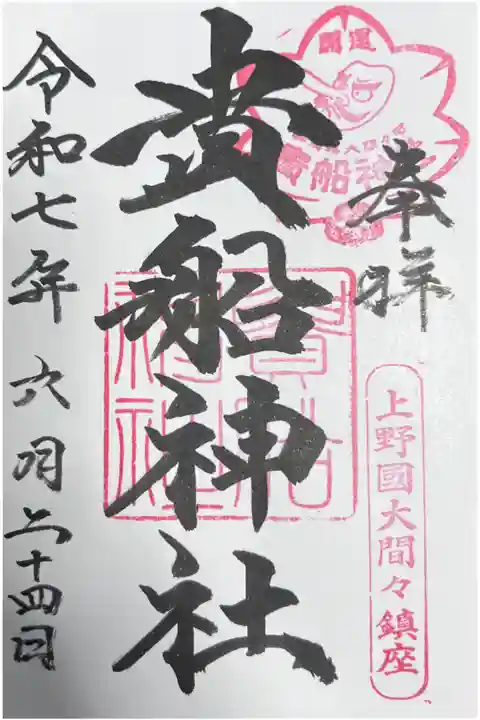 開運
貴船神
奉拝
上野國大間々鎮座
貴船神社
貴船神社
令和七年 六月二十四日